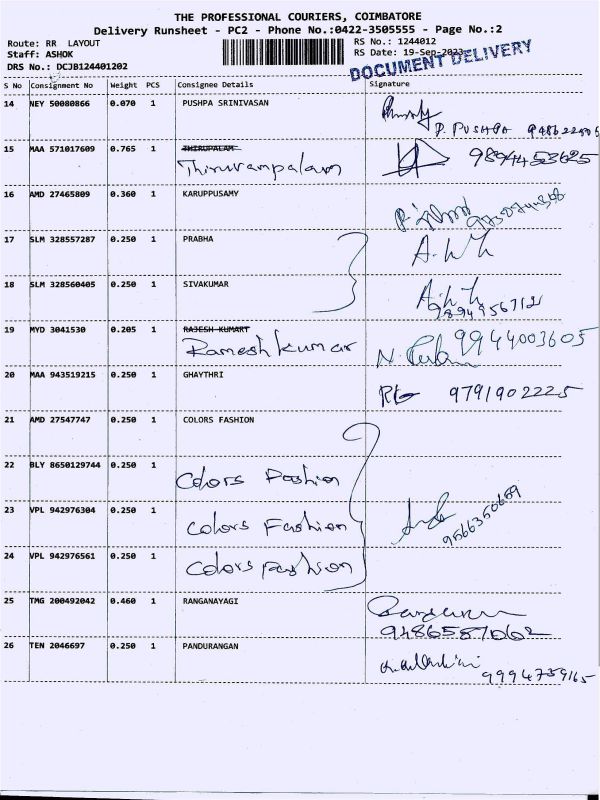 THE PROFESSIONAL COURIERS, COIMBATORE
Delivery Runsheet - PC2 - Phone No.:0422-3505555 - Page No.:2
Route: RR LAYOUT
Staff: ASHOK
DRS No.: DCJB124401202
RS No.: 1244012
RS Date: 19-Sep-2023
DOCUMENT DELIVERY
S No Consignment No Weight PCS Consignee Details Signature
14 NEY 50080866 0.070 1 PUSHPA SRINIVASAN
P. PUSHPA
15 MAA 571017609 0.765 1 THIRUPALAM 9894453625
Thiruvampalam
16 AMD 27465809 0.360 1 KARUPPUSAMY
17 SLM 328557287 0.250 1 PRABHA
18 SLM 328560405 0.250 1 SIVAKUMAR
19 MYD 3041530 0.205 1 RAJESH KUMART 9944003605
Ramesh kumar
20 MAA 943519215 0.250 1 GHAYTHRI
9791902225
21 AMD 27547747 0.250 1 COLORS FASHION
22 BLY 8650129744 0.250 1 Colors Fashion
23 VPL 942976304 0.250 1 Colors Fashion 9566350659
24 VPL 942976561 0.250 1 Colors Fashion
25 TMG 200492042 0.460 1 RANGANAYAGI
9486587062
26 TEN 2046697 0.250 1 PANDURANGAN
9994739165